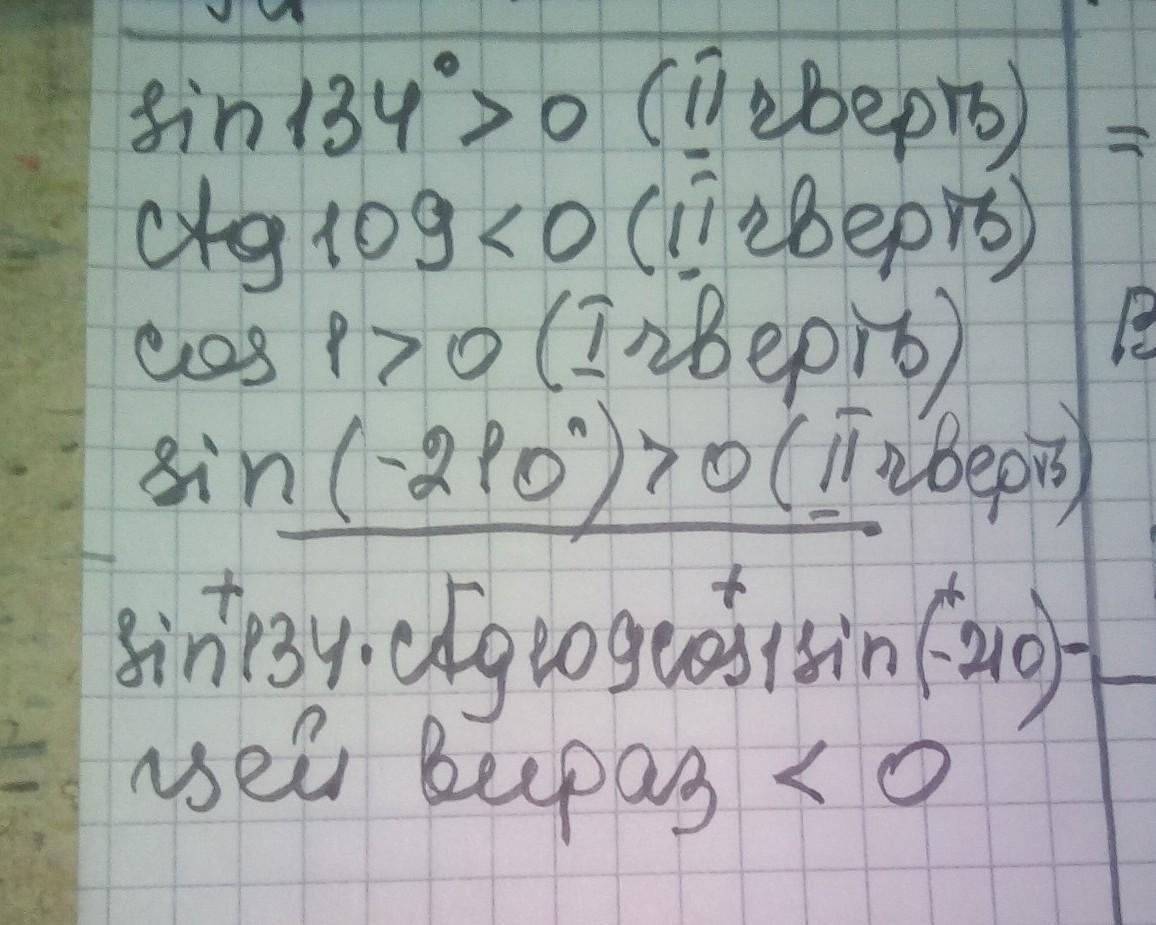 sin 134° > 0 (II чверть)
ctg 109 < 0 (II чверть)
cos 1 > 0 (I чверть)
sin (-210°) > 0 (II чверть)
+ + +
sin 134 · ctg 109 cos 1 sin (-210) -
цей вираз < 0
=
В